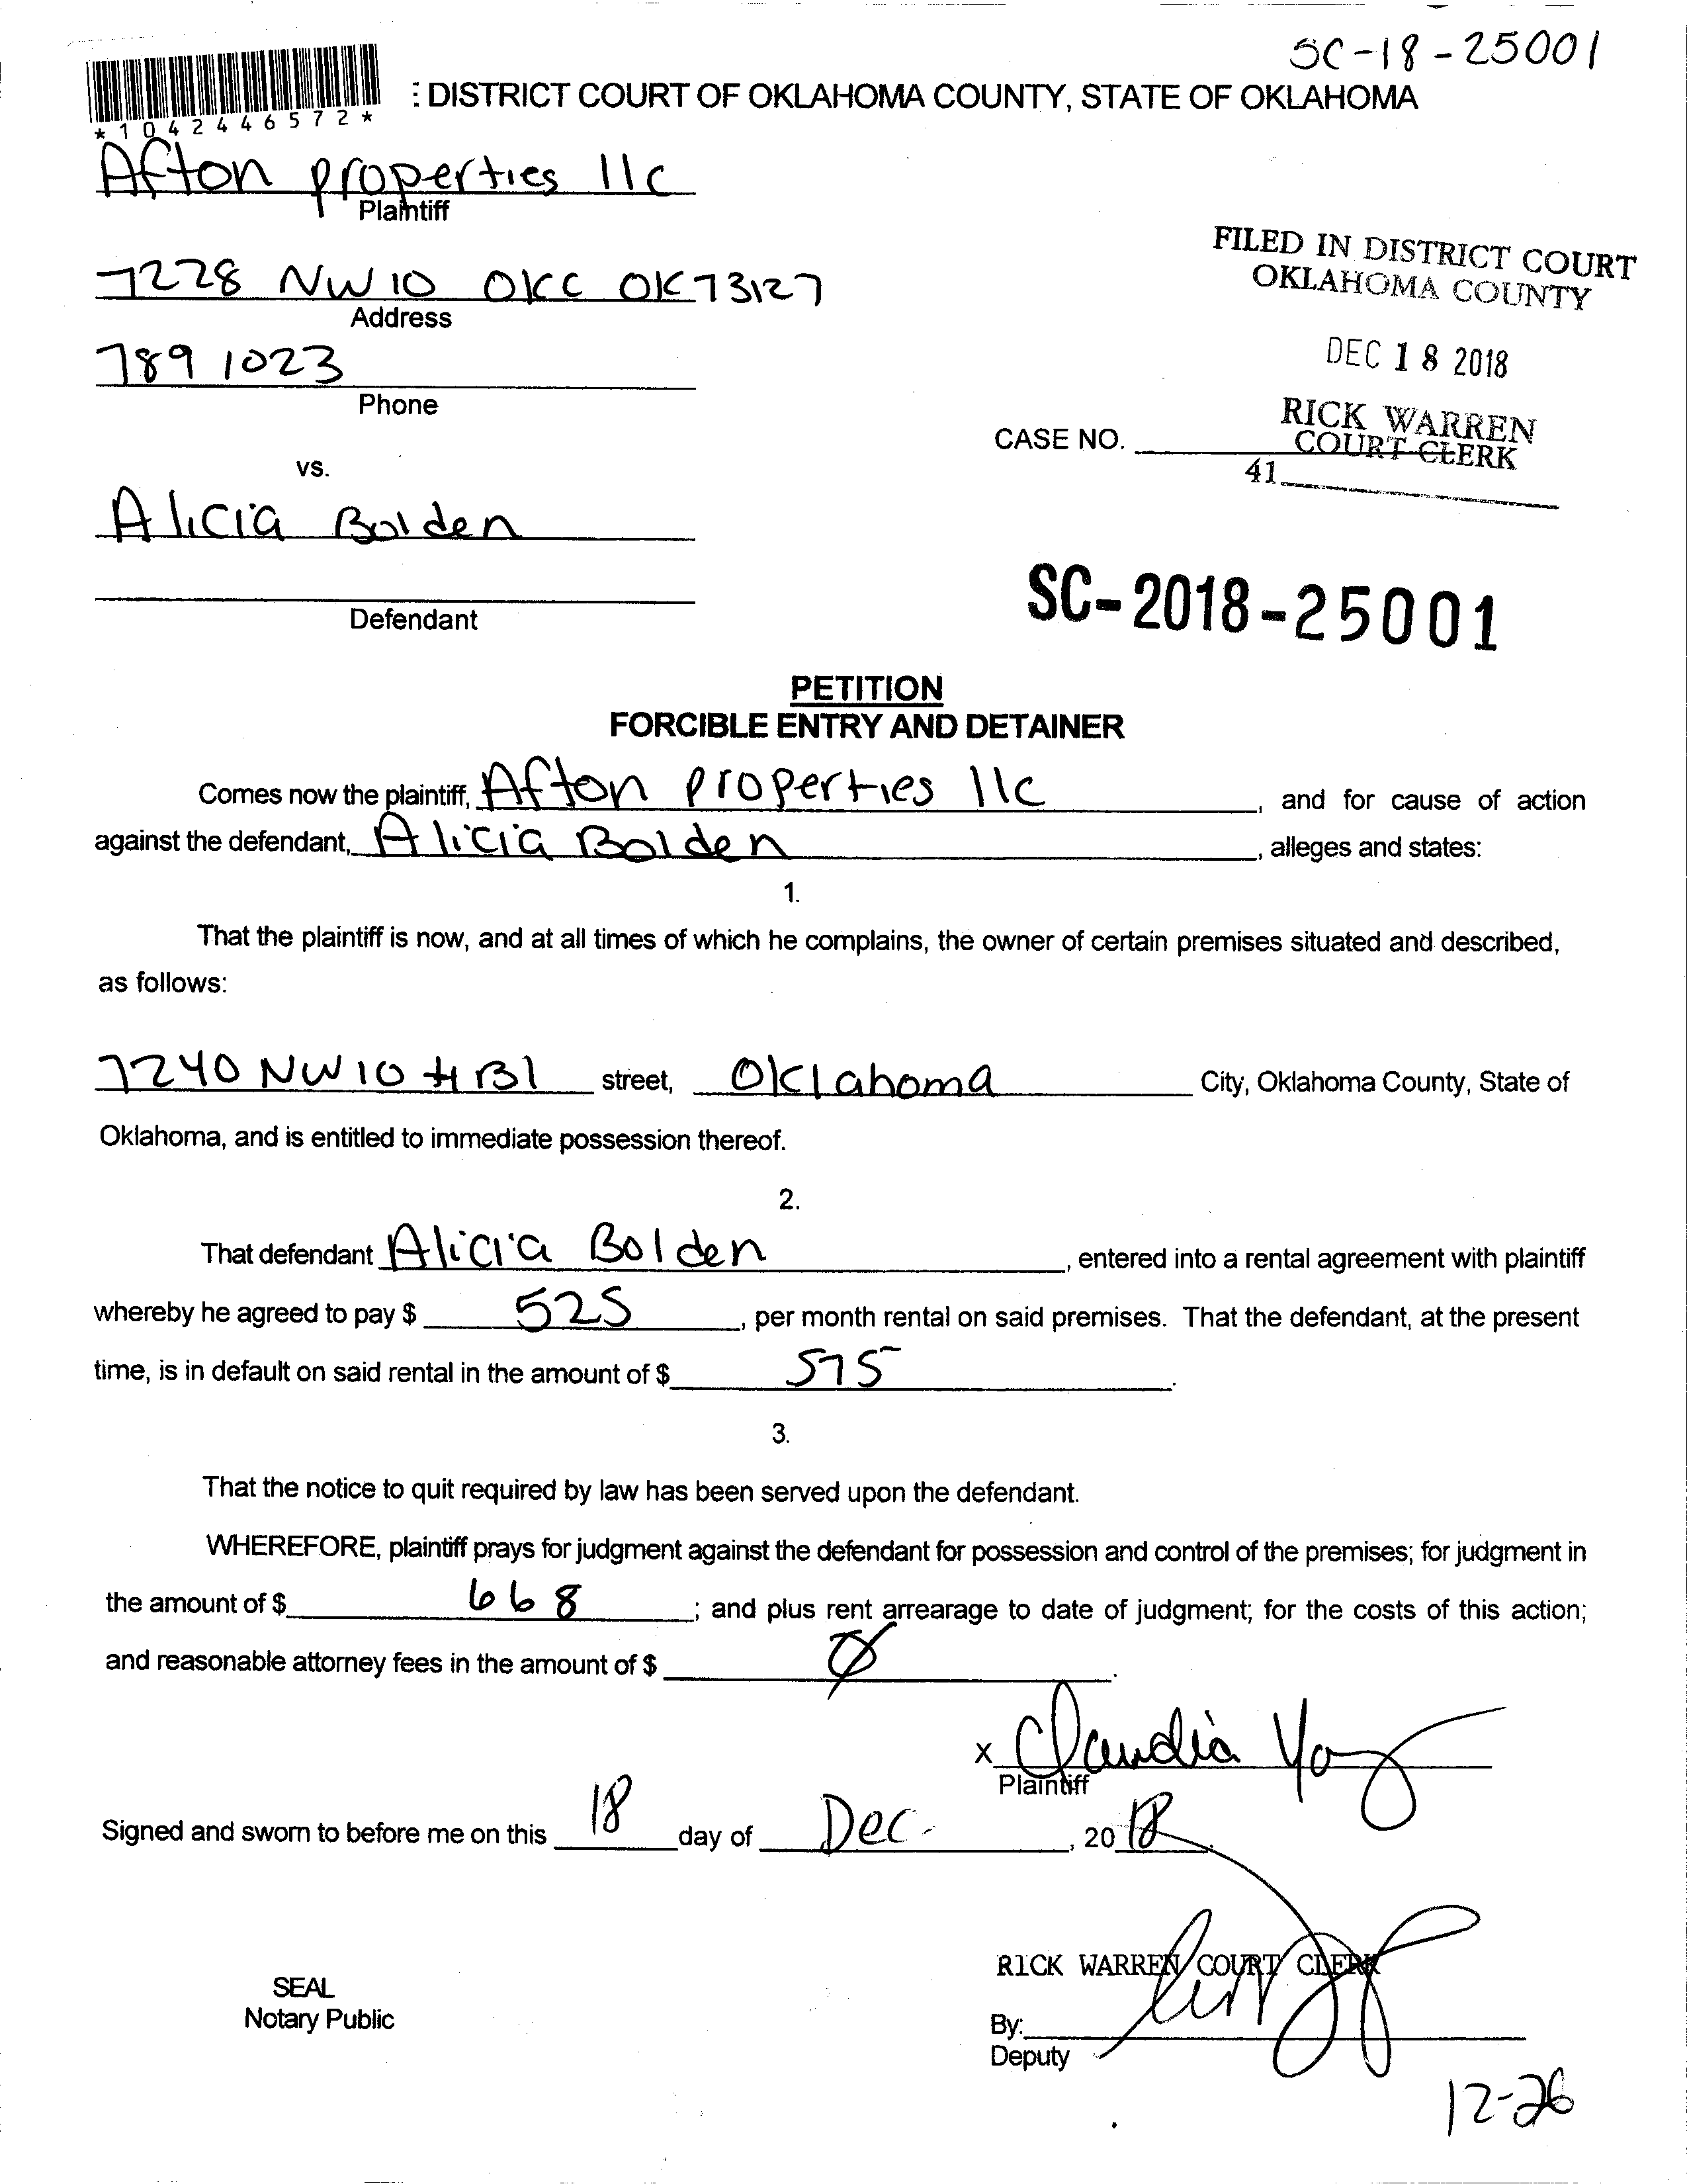 SC-18-25001
*1042446572*
: DISTRICT COURT OF OKLAHOMA COUNTY, STATE OF OKLAHOMA
Afton properties llc
Plaintiff
7228 NW 10 OKC OK 73127
Address
789 1023
Phone
FILED IN DISTRICT COURT
OKLAHOMA COUNTY
DEC 18 2018
RICK WARREN
COURT CLERK
41
CASE NO.
vs.
Alicia Bolden
Defendant
SC-2018-25001
PETITION
FORCIBLE ENTRY AND DETAINER
Comes now the plaintiff, Afton properties llc, and for cause of action
against the defendant, Alicia Bolden, alleges and states:
1.
That the plaintiff is now, and at all times of which he complains, the owner of certain premises situated and described,
as follows:
7240 NW 10 # B1 street, Oklahoma City, Oklahoma County, State of
Oklahoma, and is entitled to immediate possession thereof.
2.
That defendant Alicia Bolden, entered into a rental agreement with plaintiff
whereby he agreed to pay $ 525, per month rental on said premises. That the defendant, at the present
time, is in default on said rental in the amount of $ 575.
3.
That the notice to quit required by law has been served upon the defendant.
WHEREFORE, plaintiff prays for judgment against the defendant for possession and control of the premises; for judgment in
the amount of $ 668; and plus rent arrearage to date of judgment; for the costs of this action;
and reasonable attorney fees in the amount of $ Ø.
x Claudia
Plaintiff
Signed and sworn to before me on this 18 day of Dec., 2018
RICK WARREN COURT CLERK
SEAL
Notary Public
By:
Deputy
12-26